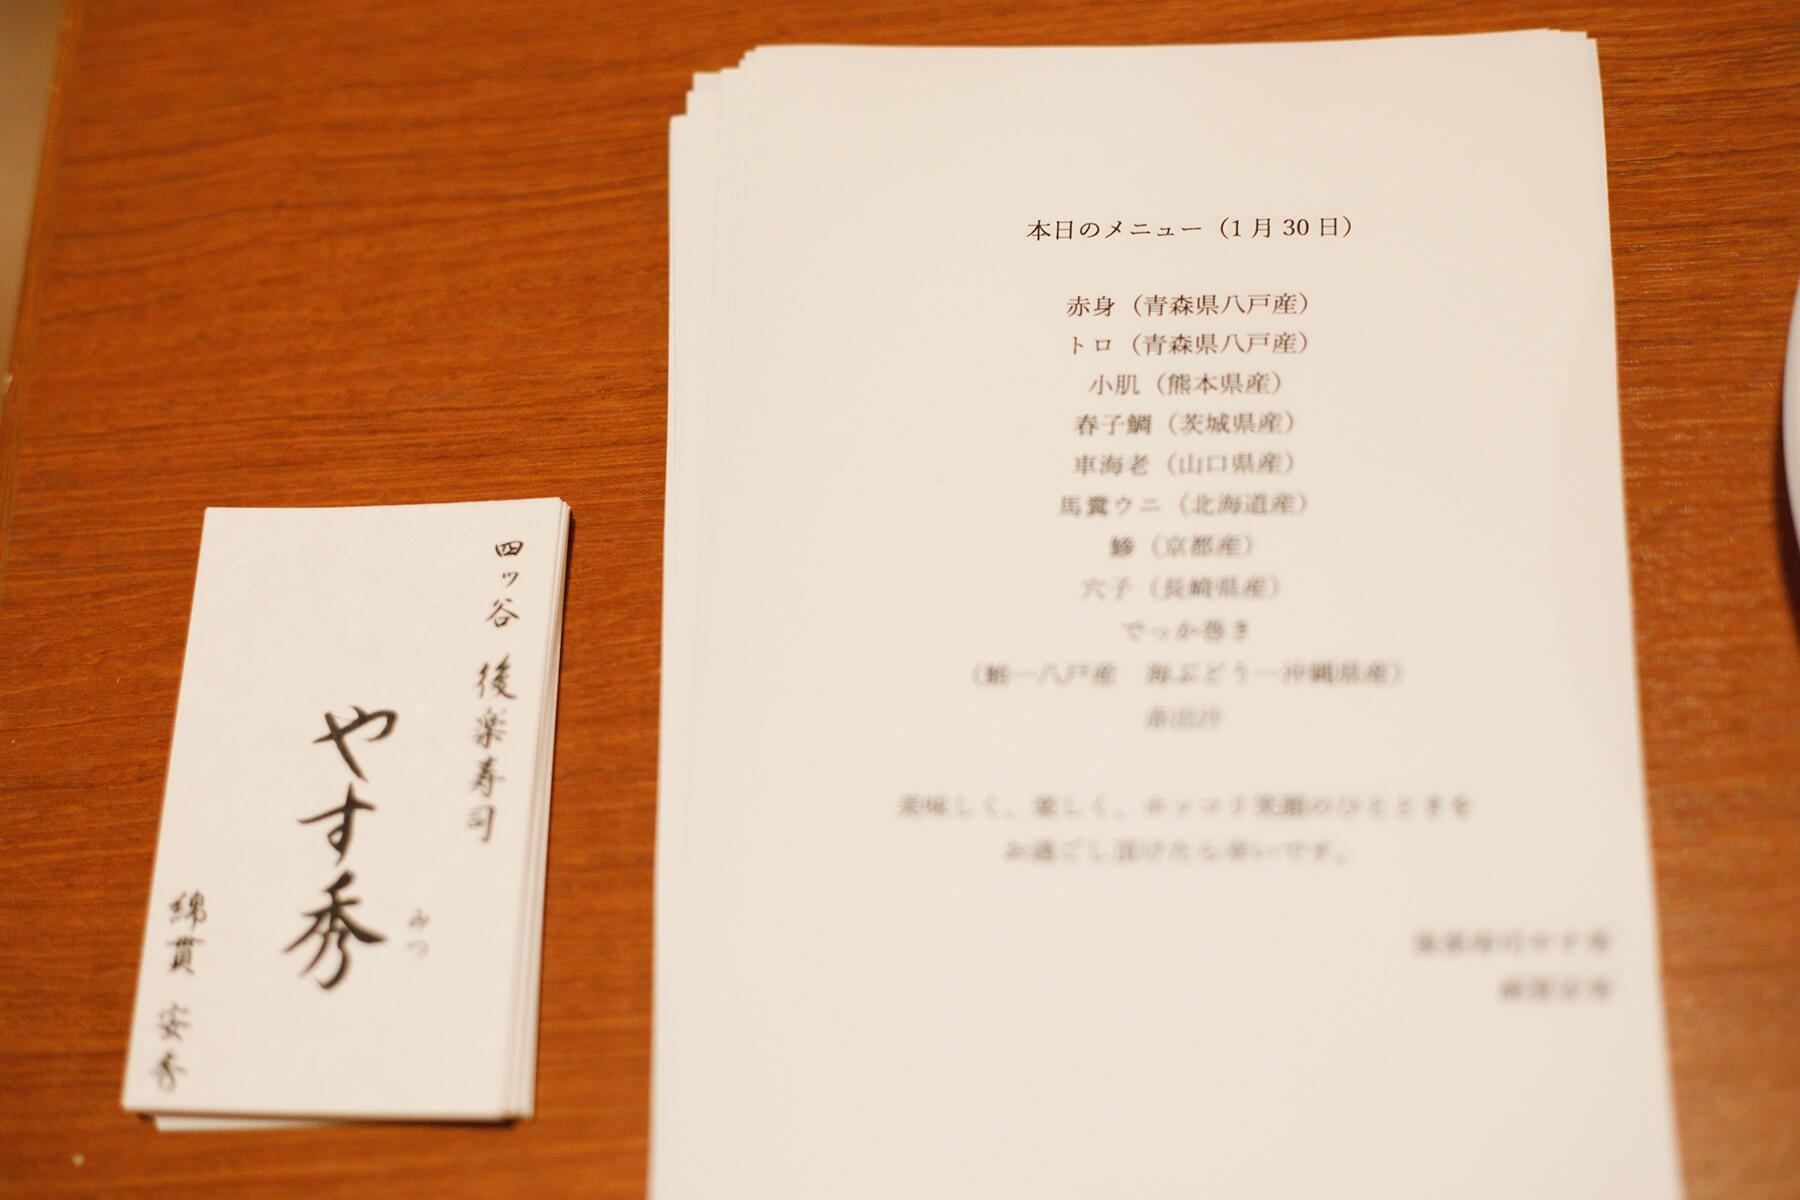 四ッ谷 後楽寿司
やす秀
みつ
綿貫 安秀
本日のメニュー（1月30日）
赤身（青森県八戸産）
トロ（青森県八戸産）
小肌（熊本県産）
春子鯛（茨城県産）
車海老（山口県産）
馬糞ウニ（北海道産）
鰺（京都産）
穴子（長崎県産）
でっか巻き
（鮪…八戸産　海ぶどう…沖縄県産）
赤出汁
美味しく、楽しく、ホッコリ笑顔のひとときを
お過ごし頂けたら幸いです。
後楽寿司やす秀
綿貫安秀